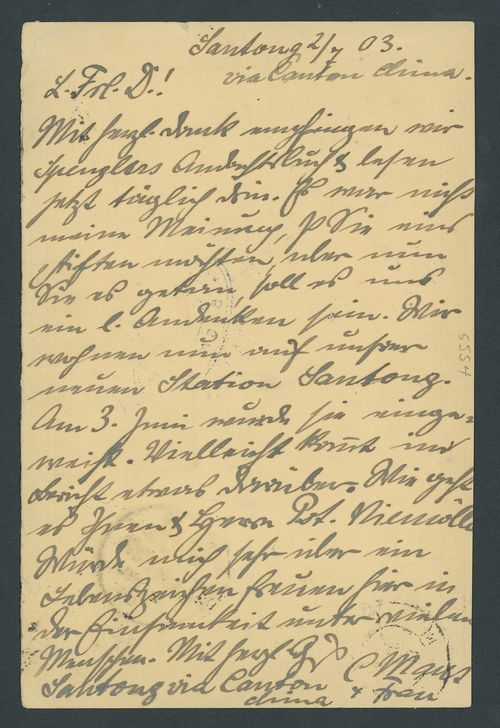 Santong 2/7 03.
via Canton China.
L. Frl. D.!
Mit herzl. Dank empfingen wir
Spenglers Andachtsbuch & lesen
jetzt täglich drin. Es war nicht
meine Meinung, Sie uns
stiften möchten, aber nun
Sie es getan, soll es uns
ein l. Andenken sein. Wir
wohnen nun auf unsrer
neuen Station Santong.
Am 3. Juni wurde sie einge-
weiht. Vielleicht kommt im
Bericht etwas darüber. Wie geht
es Ihnen & Herrn Niemöller
Würde mich sehr über ein
Lebenszeichen freuen hier in
der Einsamkeit unter vielen
Menschen. Mit herzl.
C Maus
& Frau
Santong via Canton
China
5554